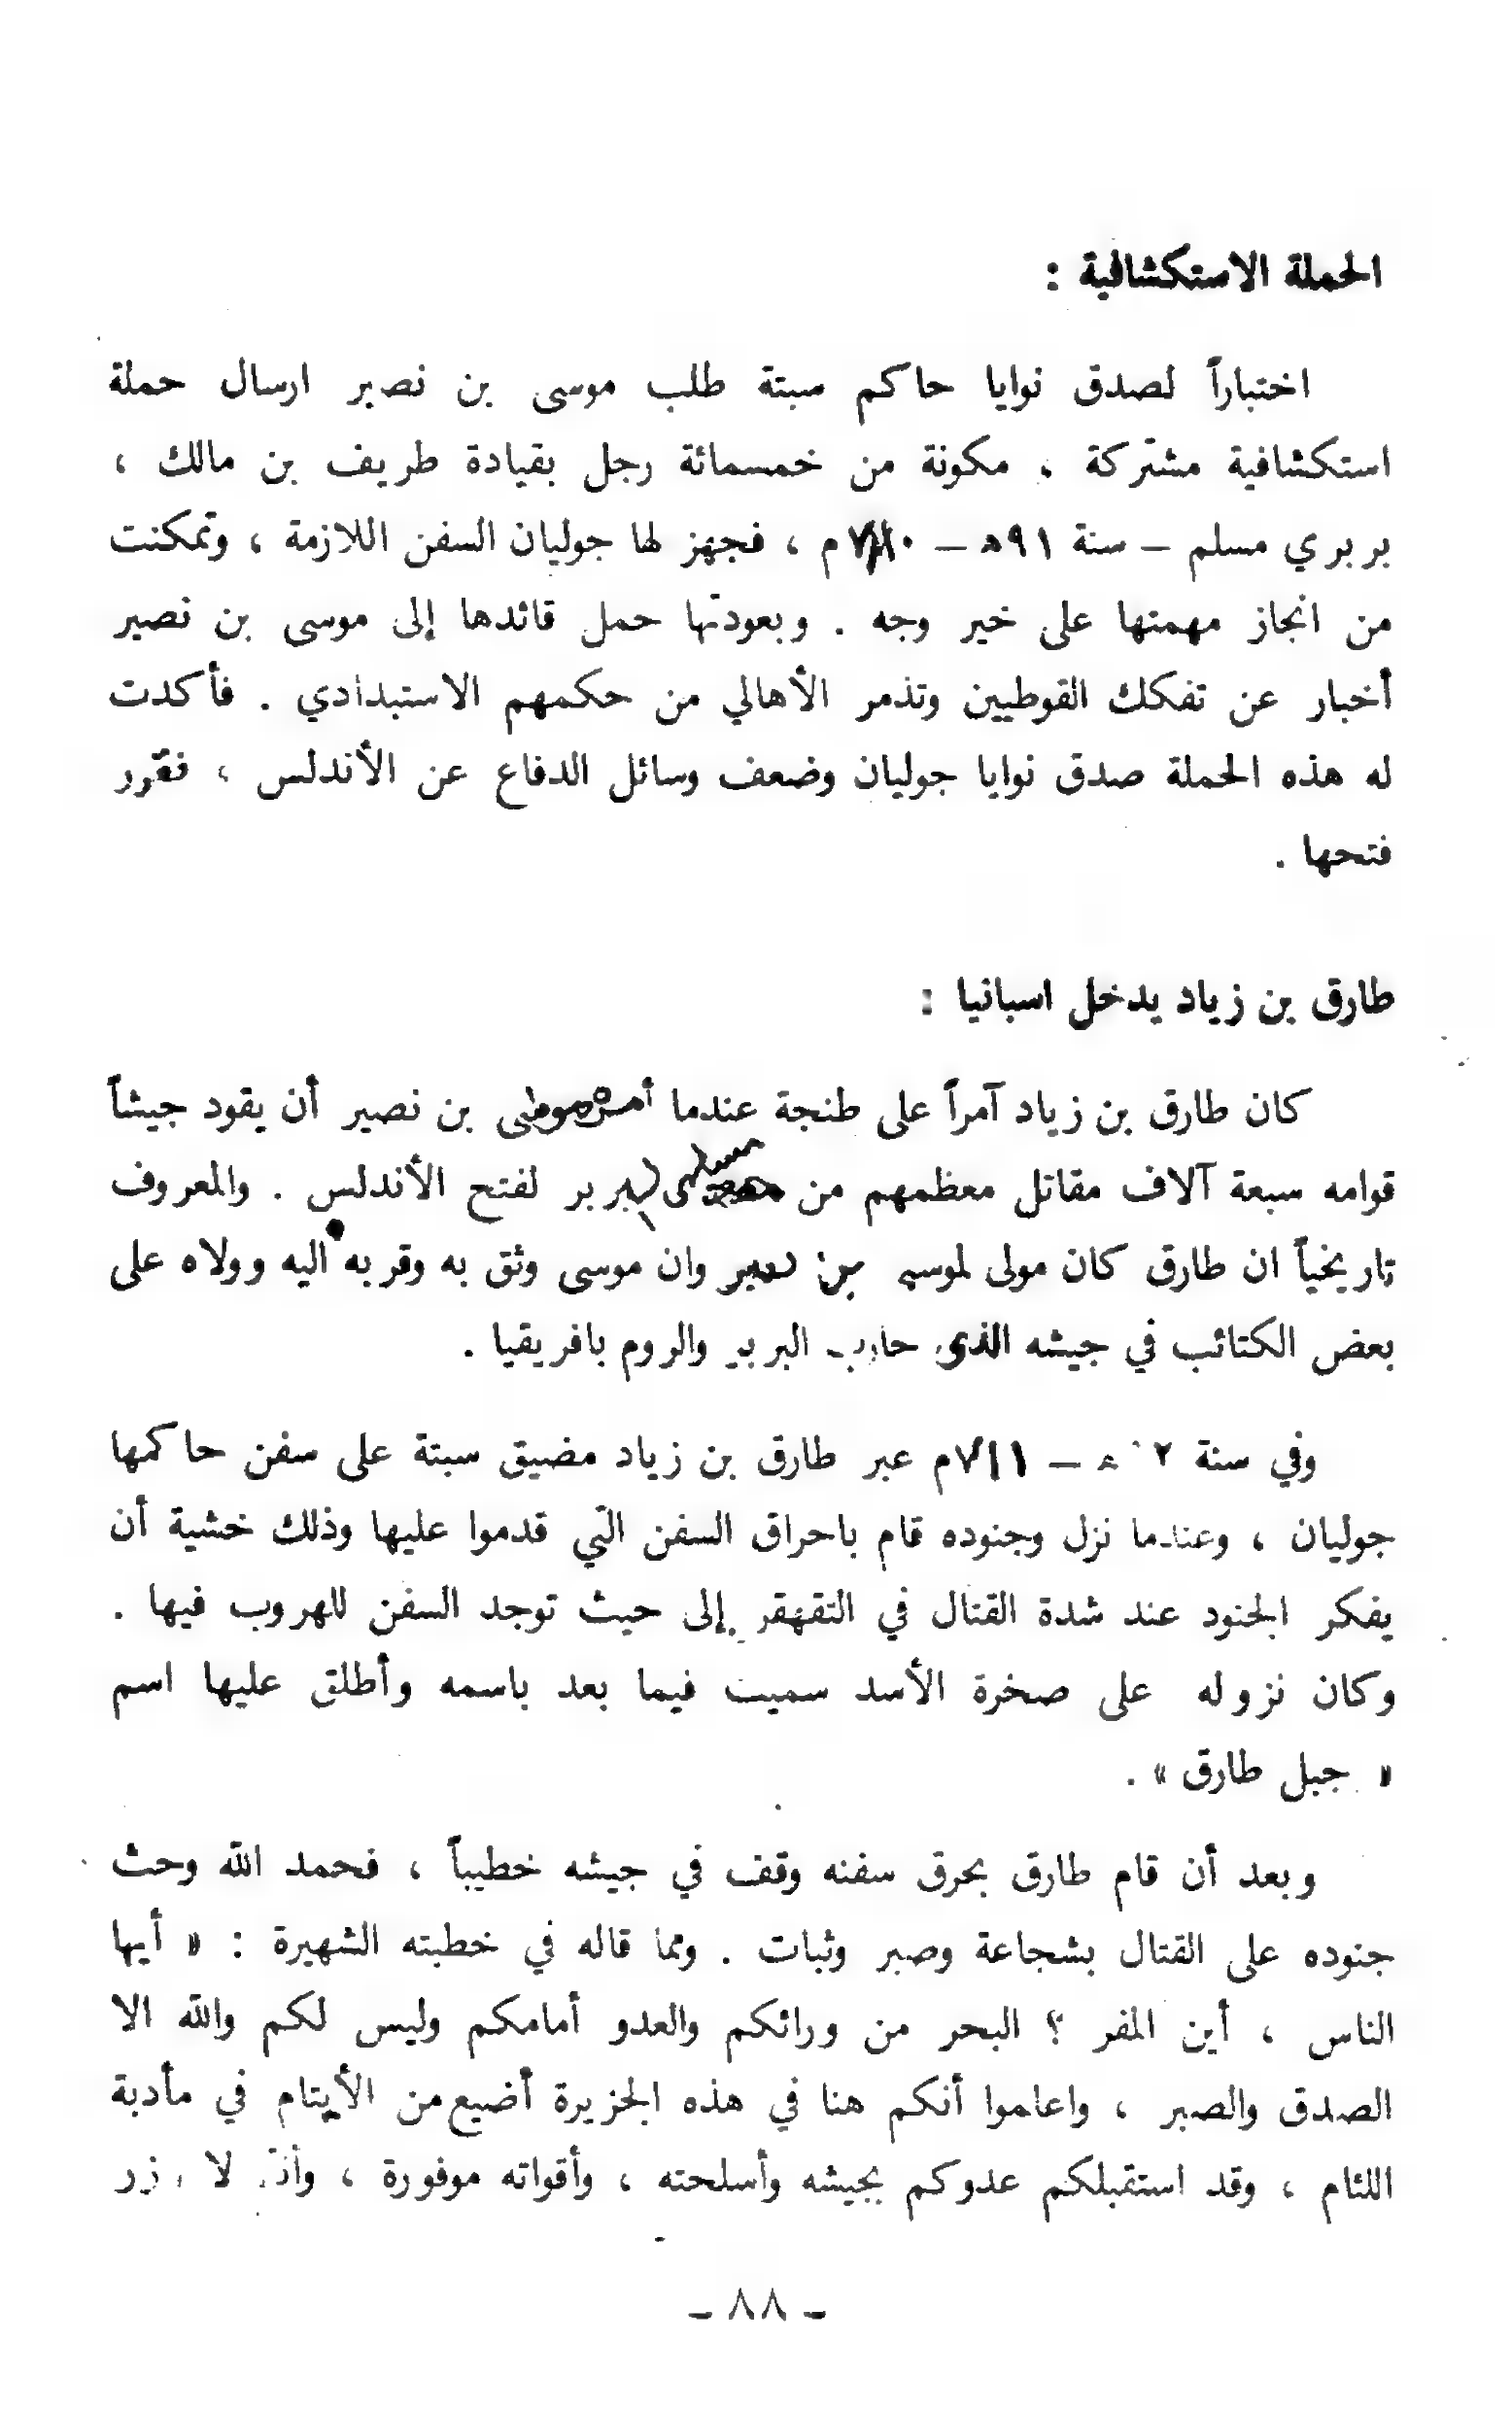 الحملة الاستكشافية :
اختباراً لصدق نوايا حاكم سبتة طلب موسى بن نصير ارسال حملة
استكشافية مشتركة ، مكونة من خمسمائة رجل بقيادة طريف بن مالك ،
بربري مسلم – سنة ٩١ه – ٧١٠م ، فجهز لها جوليان السفن اللازمة ، وتمكنت
من انجاز مهمتها على خير وجه . وبعودتها حمل قائدها إلى موسى بن نصير
أخبار عن تفكك القوطيين وتذمر الأهالي من حكمهم الاستبدادي . فأكدت
له هذه الحملة صدق نوايا جوليان وضعف وسائل الدفاع عن الأندلس ، فقرر
فتحها .
طارق بن زياد يدخل اسبانيا :
كان طارق بن زياد آمراً على طنجة عندما أمره موسى بن نصير أن يقود جيشاً
قوامه سبعة آلاف مقاتل معظمهم من مسلمي البربر لفتح الأندلس . والمعروف
تاريخياً ان طارق كان مولى لموسى بن نصير وان موسى وثق به وقربه اليه وولاه على
بعض الكتائب في جيشه الذي حارب البربر والروم بافريقيا .
وفي سنة ه – ٧١١م عبر طارق بن زياد مضيق سبتة على سفن حاكمها
جوليان ، وعندما نزل وجنوده قام باحراق السفن التي قدموا عليها وذلك خشية أن
يفكر الجنود عند شدة القتال في التقهقر إلى حيث توجد السفن للهروب فيها .
وكان نزوله على صخرة الأسد سميت فيما بعد باسمه وأطلق عليها اسم
« جبل طارق » .
وبعد أن قام طارق بحرق سفنه وقف في جيشه خطيباً ، فحمد الله وحث
جنوده على القتال بشجاعة وصبر وثبات . ومما قاله في خطبته الشهيرة : « أيها
الناس ، أين المفر ؟ البحر من ورائكم والعدو أمامكم وليس لكم والله الا
الصدق والصبر ، واعلموا أنكم هنا في هذه الجزيرة أضيع من الأيتام في مأدبة
اللئام ، وقد استقبلكم عدوكم بجيشه وأسلحته ، وأقواته موفورة ، وأنتم لا وزر
– ٨٨ –